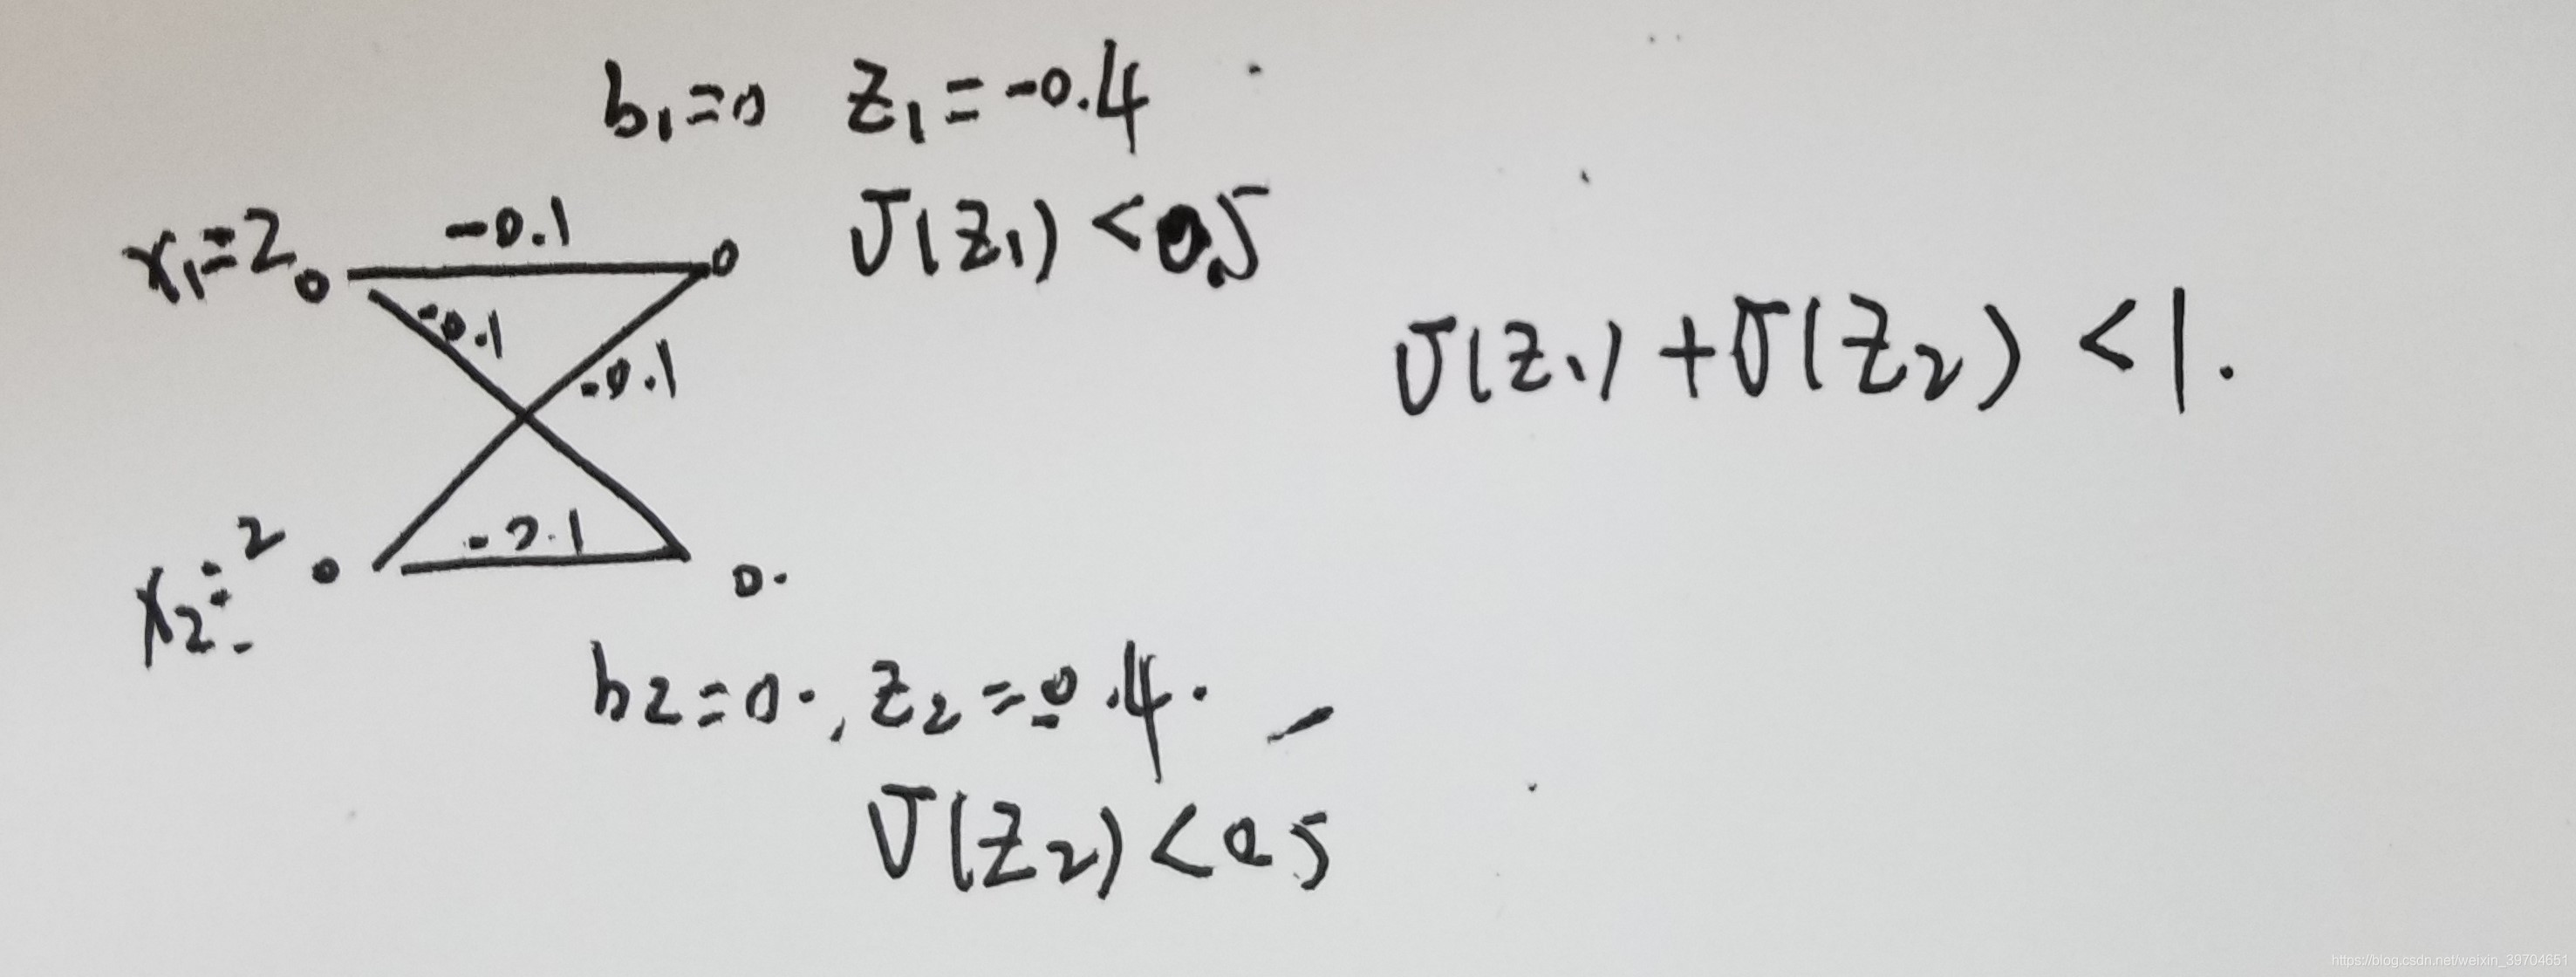 b₁=0 z₁=-0.4
σ(z₁)<0.5
x₁=2
-0.1
-0.1
-0.1
σ(z₁)+σ(z₂)<1.
x₂=2
-0.1
b2=0., z₂=-0.4.
σ(z₂)<0.5
https://blog.csdn.net/weixin_39704651